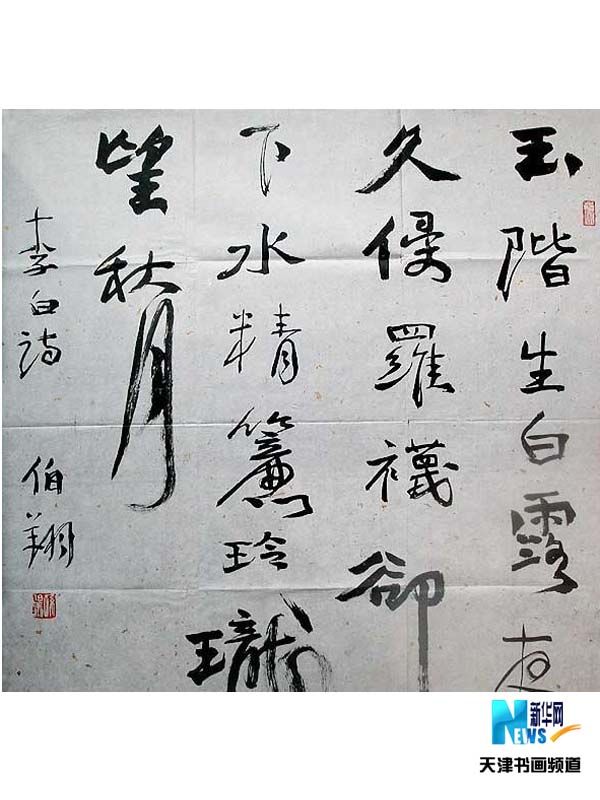 玉階生白露夜
久侵羅襪卻
下水精簾玲瓏
望秋月
李白詩 伯翔
新华网
NEWS
天津书画频道